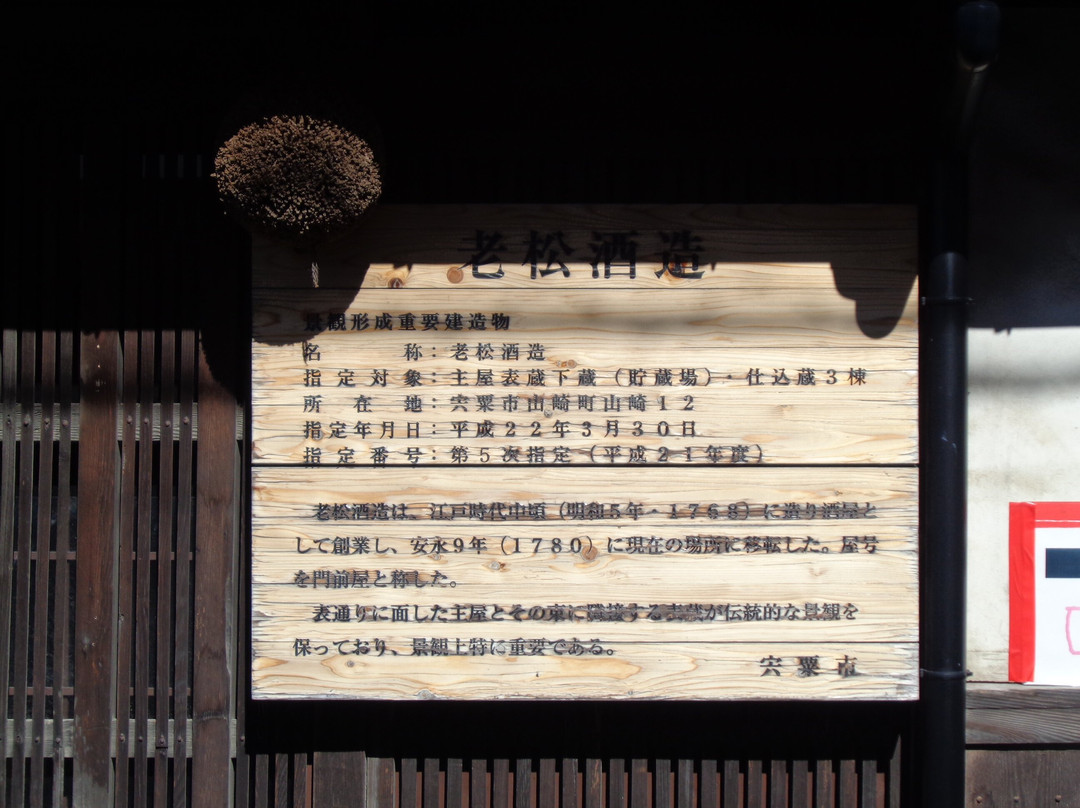 老松酒造
景観形成重要建造物
名　　　称：老松酒造
指定対象：主屋表蔵下蔵（貯蔵場）・仕込蔵３棟
所　在　地：宍粟市山崎町山崎１２
指定年月日：平成２２年３月３０日
指定番号：第５次指定（平成２１年度）
老松酒造は、江戸時代中頃（明和５年・１７６８）に造り酒屋と
して創業し、安永９年（１７８０）に現在の場所に移転した。屋号
を門前屋と称した。
表通りに面した主屋とその東に隣接する表蔵が伝統的な景観を
保っており、景観上特に重要である。
宍粟市